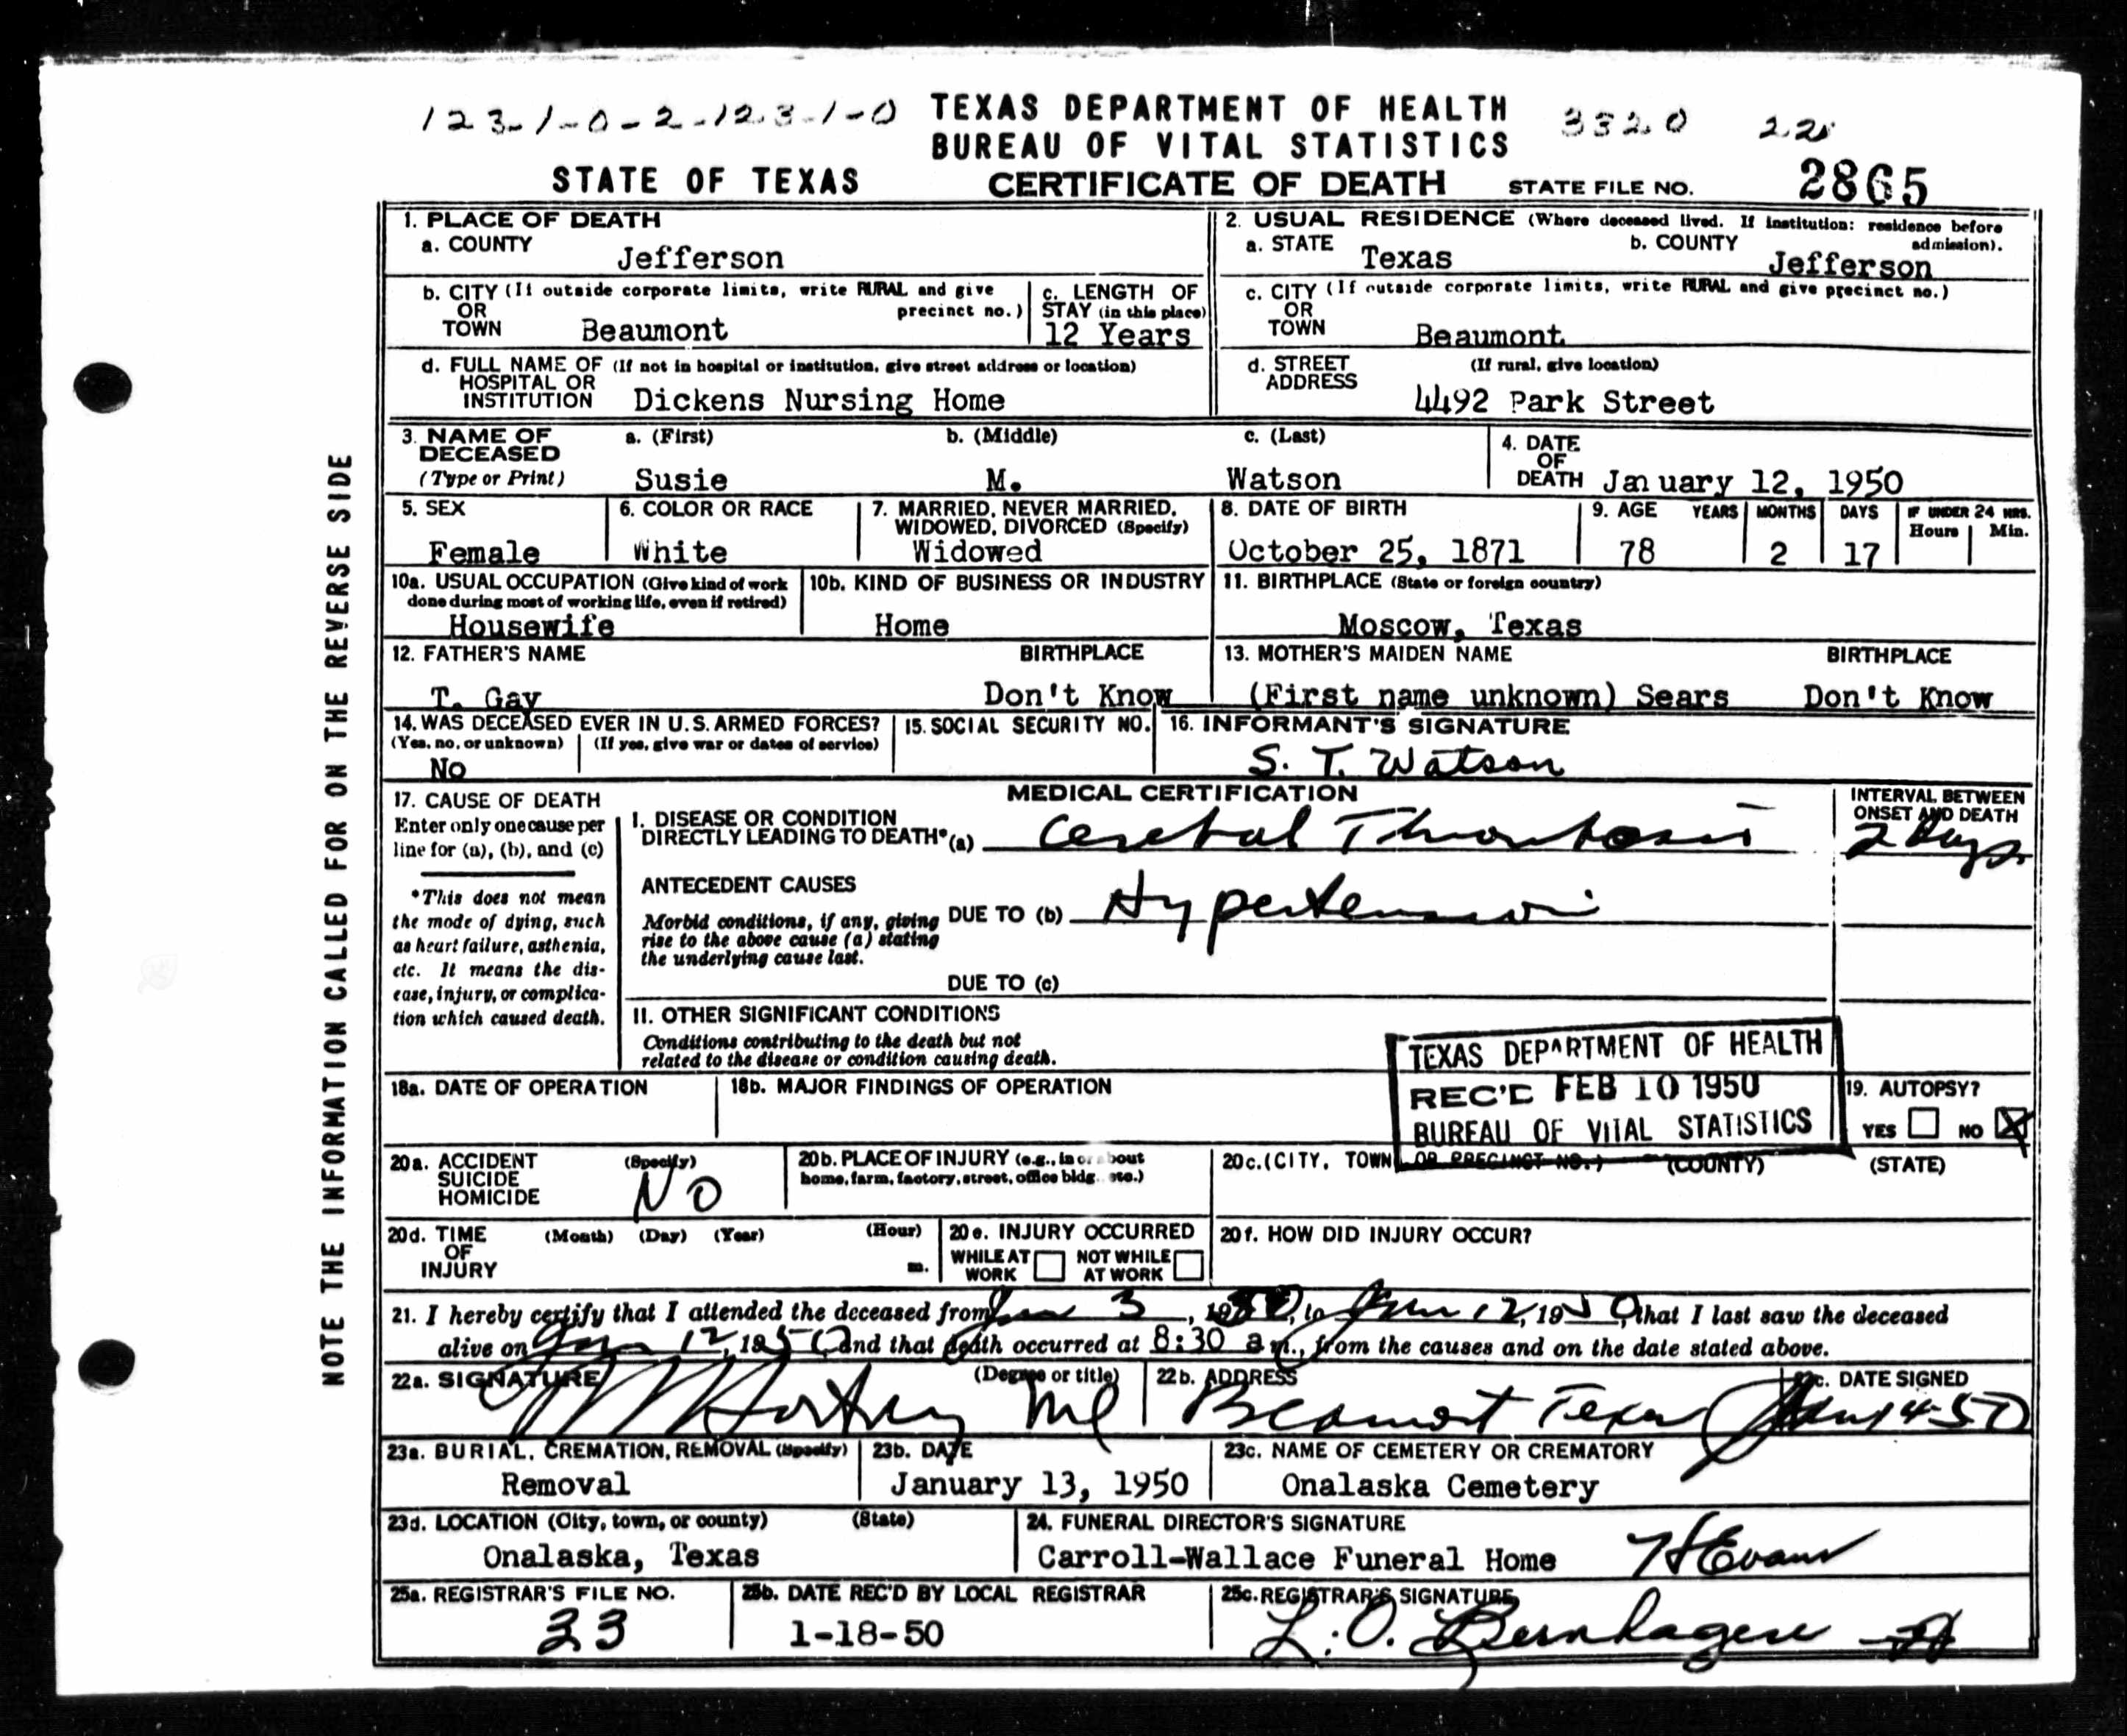 123-1-0-2-123-1-0 TEXAS DEPARTMENT OF HEALTH 3320 22
BUREAU OF VITAL STATISTICS
STATE OF TEXAS CERTIFICATE OF DEATH STATE FILE NO. 2865
NOTE THE INFORMATION CALLED FOR ON THE REVERSE SIDE
1. PLACE OF DEATH
a. COUNTY Jefferson
2. USUAL RESIDENCE (Where deceased lived. If institution: residence before admission).
a. STATE Texas b. COUNTY Jefferson
b. CITY (If outside corporate limits, write RURAL and give precinct no.)
OR
TOWN Beaumont
c. LENGTH OF
STAY (in this place)
12 Years
c. CITY (If outside corporate limits, write RURAL and give precinct no.)
OR
TOWN Beaumont
d. FULL NAME OF (If not in hospital or institution, give street address or location)
HOSPITAL OR
INSTITUTION Dickens Nursing Home
d. STREET (If rural, give location)
ADDRESS 4492 Park Street
3. NAME OF a. (First) b. (Middle) c. (Last)
DECEASED
(Type or Print) Susie M. Watson
4. DATE
OF
DEATH January 12, 1950
5. SEX
Female
6. COLOR OR RACE
White
7. MARRIED, NEVER MARRIED,
WIDOWED, DIVORCED (Specify)
Widowed
8. DATE OF BIRTH
October 25, 1871
9. AGE YEARS MONTHS DAYS IF UNDER 24 HRS.
Hours Min.
78 2 17
10a. USUAL OCCUPATION (Give kind of work
done during most of working life, even if retired)
Housewife
10b. KIND OF BUSINESS OR INDUSTRY
Home
11. BIRTHPLACE (State or foreign country)
Moscow, Texas
12. FATHER'S NAME BIRTHPLACE
T. Gay Don't Know
13. MOTHER'S MAIDEN NAME BIRTHPLACE
(First name unknown) Sears Don't Know
14. WAS DECEASED EVER IN U.S. ARMED FORCES?
(Yes, no, or unknown) (If yes, give war or dates of service)
No
15. SOCIAL SECURITY NO.
16. INFORMANT'S SIGNATURE
S. T. Watson
17. CAUSE OF DEATH
Enter only one cause per
line for (a), (b), and (c)
*This does not mean
the mode of dying, such
as heart failure, asthenia,
etc. It means the dis-
ease, injury, or complica-
tion which caused death.
MEDICAL CERTIFICATION
INTERVAL BETWEEN
ONSET AND DEATH
I. DISEASE OR CONDITION
DIRECTLY LEADING TO DEATH* (a) Cerebral Thrombosis 2 Days
ANTECEDENT CAUSES
Morbid conditions, if any, giving
rise to the above cause (a) stating
the underlying cause last.
DUE TO (b) Hypertension
DUE TO (c)
II. OTHER SIGNIFICANT CONDITIONS
Conditions contributing to the death but not
related to the disease or condition causing death.
TEXAS DEPARTMENT OF HEALTH
REC'D FEB 10 1950
BUREAU OF VITAL STATISTICS
18a. DATE OF OPERATION
18b. MAJOR FINDINGS OF OPERATION
19. AUTOPSY?
YES NO
20a. ACCIDENT (Specify)
SUICIDE
HOMICIDE
No
20b. PLACE OF INJURY (e.g., in or about
home, farm, factory, street, office bldg., etc.)
20c. (CITY, TOWN OR PRECINCT NO.) (COUNTY) (STATE)
20d. TIME (Month) (Day) (Year) (Hour)
OF
INJURY m.
20e. INJURY OCCURRED
WHILE AT NOT WHILE
WORK AT WORK
20f. HOW DID INJURY OCCUR?
21. I hereby certify that I attended the deceased from Jan 3, 1950, to Jan 12, 1950, that I last saw the deceased
alive on Jan 12, 1950 and that death occurred at 8:30 a m., from the causes and on the date stated above.
22a. SIGNATURE (Degree or title)
MD
22b. ADDRESS
Beaumont Texas
22c. DATE SIGNED
Jan 14-50
23a. BURIAL, CREMATION, REMOVAL (Specify)
Removal
23b. DATE
January 13, 1950
23c. NAME OF CEMETERY OR CREMATORY
Onalaska Cemetery
23d. LOCATION (City, town, or county) (State)
Onalaska, Texas
24. FUNERAL DIRECTOR'S SIGNATURE
Carroll-Wallace Funeral Home H Evans
25a. REGISTRAR'S FILE NO.
33
25b. DATE REC'D BY LOCAL REGISTRAR
1-18-50
25c. REGISTRAR'S SIGNATURE
L. O. Bernhagen